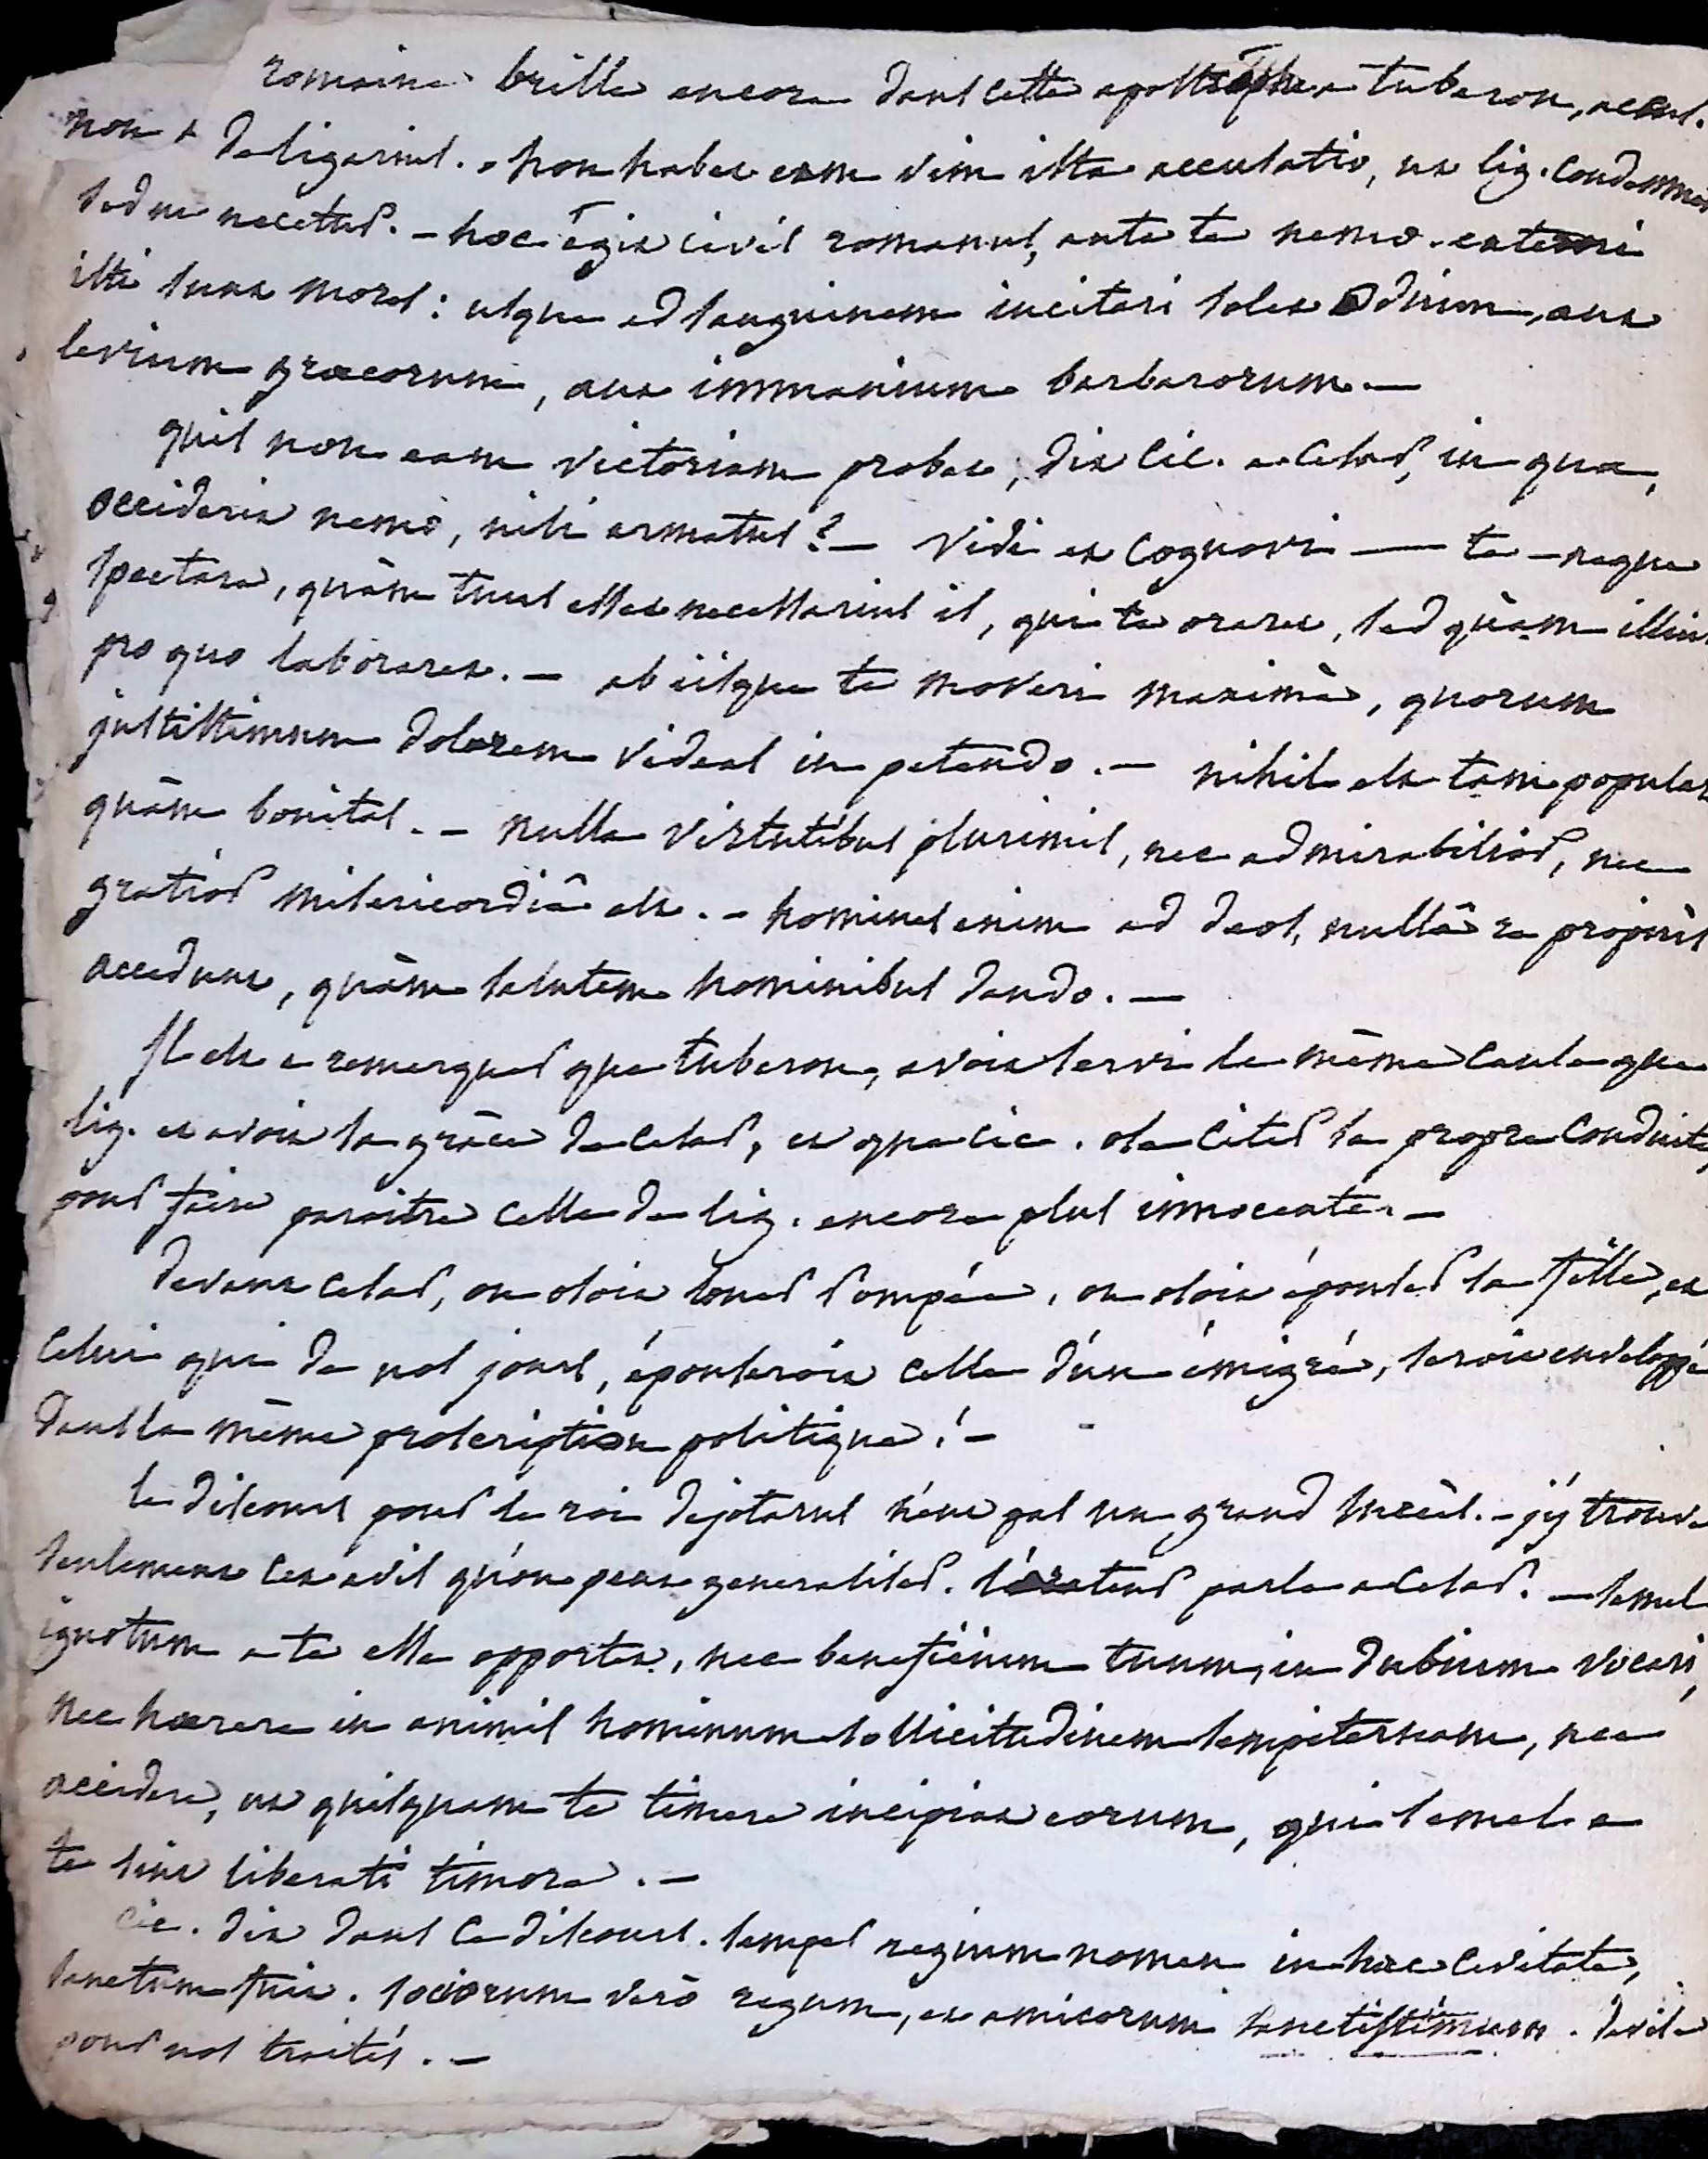 romaine brille encore dans cette apostrophe a tuberon, accus.
non de ligarius. - non habet eam vim ista accusatio, ut lig. condemn
sed ut necetur. - hoc egit civis romanus, ante te nemo. externi
isti sunt mores: usque ad sanguinem incitari solet odium, aut
levium græcorum, aut immanium barbarorum. —
quis non eam victoriam probet, dit cic. a cesar, in qua,
occiderit nemo, nisi armatus? — vidi et cognovi — te - neque
spectare, quàm tuus esset necessarius is, qui te oraret, sed quàm illius
pro quo laboraret. — ab iisque te moveri maximè, quorum
justissimum dolorem videas in petendo. — nihil est tam popular
quàm bonitas. - nulla virtutibus plurimis, nec admirabilior, nec
gratior misericordiâ est. - homines enim ad deos, nullâ re propriùs
accedunt, quàm salutem hominibus dando. —
Il est a remarquer que tuberon, avoit servi la même cause que
lig. et avoit sa grâce de cesar, et que cic. ose citer sa propre conduite,
pour faire paroitre celle de lig. encore plus innocente. —
devant cesar, on osoit louer Pompée, on osoit épouser sa fille, et
celui qui de nos jours, épouseroit celle d'un émigré, seroit enveloppé
dans la même proscription politique! -
le discours pour le roi dejotarus n'eut pas un grand succès. - j'y trouve
seulement cet avis qu'on peut generaliser. l'orateur parle a cesar. — semel
ignotum a te esse opportet, nec beneficium tuum, in dubium vocari,
nec hærere in animis hominum sollicitudinem sempiternam, nec
accidere, ut quisquam te timere incipiat eorum, qui semel a
te sint liberati timore. —
cic. dit dans ce discours. semper regium nomen in hac civitate,
sanctum fuit. sociorum verò regum, et amicorum sanctissimum. avis
pour nos traités. —